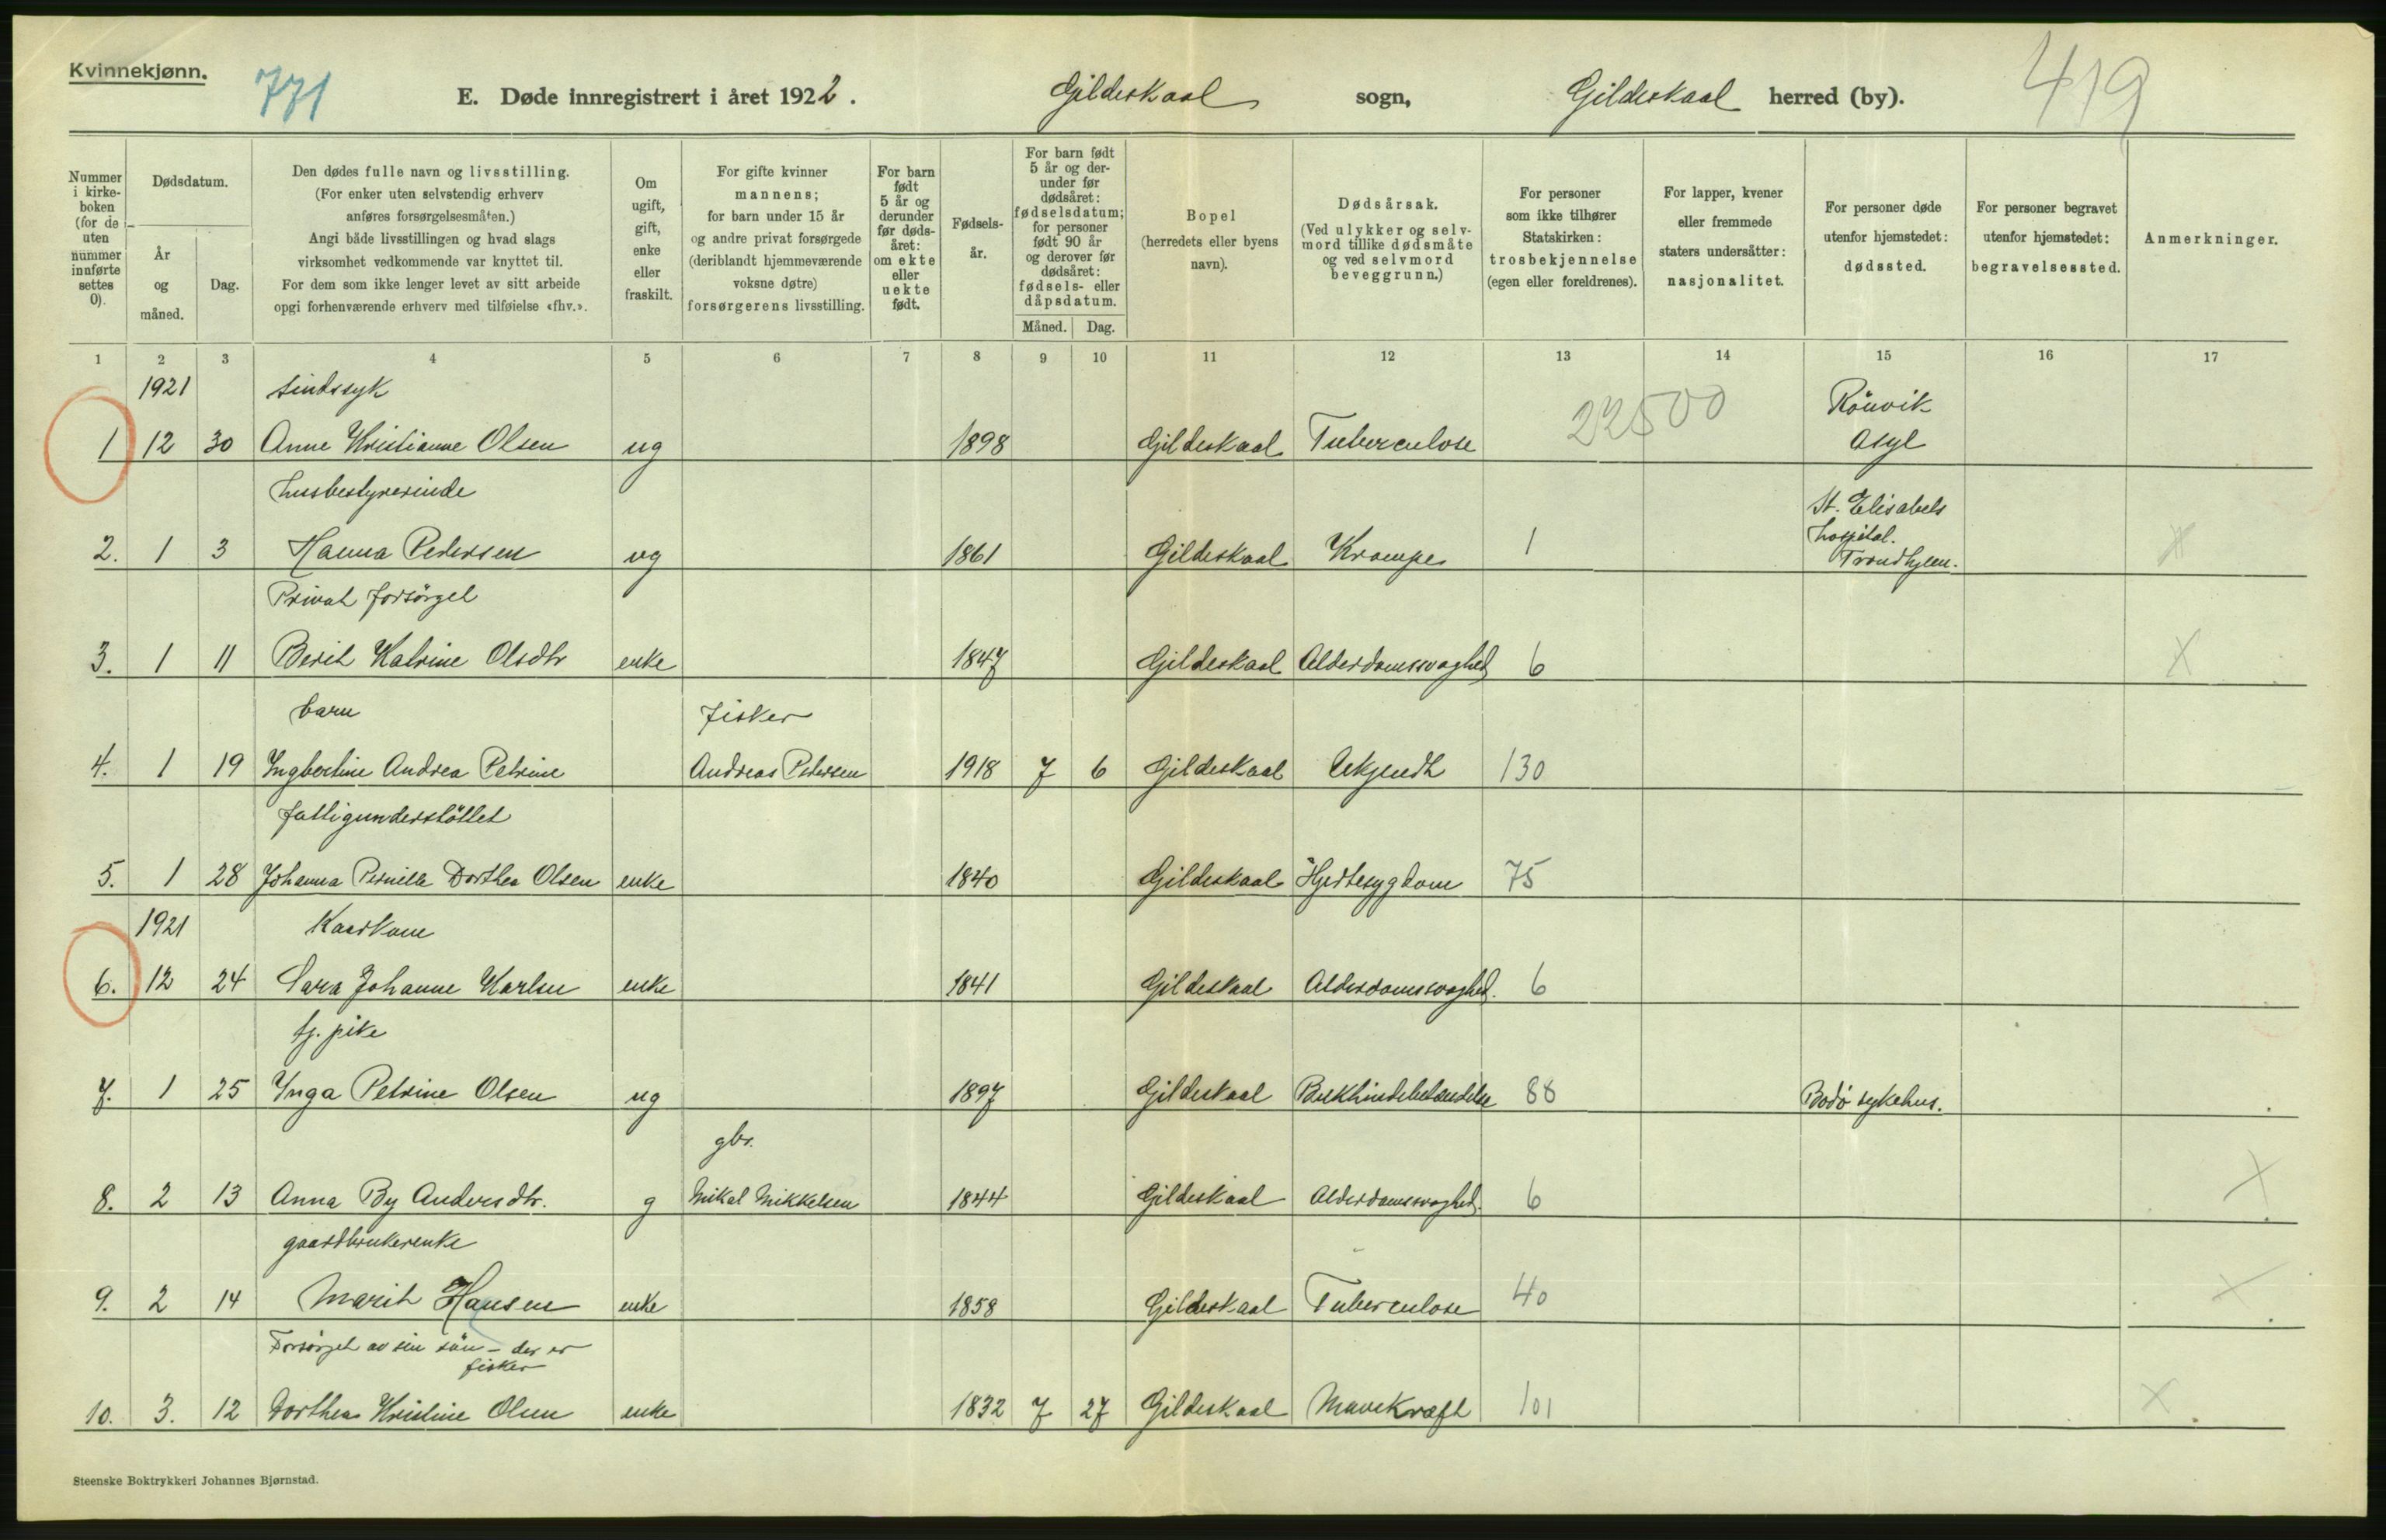 Kvinnekjønn.
771
E. Døde innregistrert i året 1922. Gildeskaal sogn, Gildeskaal herred (by).
419
Nummer i kirke-boken (for de uten nummer innførte settes 0).
Dødsdatum.
År og måned.
Dag.
Den dødes fulle navn og livsstilling.
(For enker uten selvstendig erhverv
anføres forsørgelsesmåten.)
Angi både livsstillingen og hvad slags
virksomhet vedkommende var knyttet til.
For dem som ikke lenger levet av sitt arbeide
opgi forhenværende erhverv med tilføielse «fhv.».
Om
ugift,
gift,
enke
eller
fraskilt.
For gifte kvinner
mannens;
for barn under 15 år
og andre privat forsørgede
(deriblandt hjemmeværende
voksne døtre)
forsørgerens livsstilling.
For barn
født
5 år og
derunder
før døds-
året:
om ekte
eller
uekte
født.
Fødsels-
år.
For barn født
5 år og der-
under før
dødsåret:
fødselsdatum;
for personer
født 90 år
og derover før
dødsåret:
fødsels- eller
dåpsdatum.
Måned. Dag.
Bopel
(herredets eller byens
navn).
Dødsårsak.
(Ved ulykker og selv-
mord tillike dødsmåte
og ved selvmord
beveggrunn.)
For personer
som ikke tilhører
Statskirken:
trosbekjennelse
(egen eller foreldrenes).
For lapper, kvener
eller fremmede
staters undersåtter:
nasjonalitet.
For personer døde
utenfor hjemstedet:
dødssted.
For personer begravet
utenfor hjemstedet:
begravelsessted.
Anmerkninger.
1 2 3 4 5 6 7 8 9 10 11 12 13 14 15 16 17
1921 sindssyk 22500 Rönvik
1 12 30 Anne Kristianne Olsen ug 1898 Gildeskaal Tuberculose Asyl
husbestyrerinde St. Elisabets
hospital.
2. 1 3 Hanna Pedersen ug 1861 Gildeskaal Krampe 1 Trondhjem. X
Privat forsörget
3. 1 11 Berit Katrine Olsdtr enke 1847 Gildeskaal Alderdomssvaghed 6 X
barn fisker
4. 1 19 Ingbertine Andrea Petrine Andreas Petersen 1918 7 6 Gildeskaal Ukjendt 130
fattigunderstöttet
5. 1 28 Johanna Pernille Dorthea Olsen enke 1840 Gildeskaal Hjertesygdom 75
1921 Kaarkone
6. 12 24 Sara Johanne Karlsen enke 1841 Gildeskaal Alderdomssvaghed. 6
tj. pike
7. 1 25 Inga Petrine Olsen ug 1897 Gildeskaal Bukhindebetændelse 88 Bodö sykehus.
gbr.
8. 2 13 Anna By Andersdtr. g Mikal Mikkelsen 1844 Gildeskaal Alderdomssvaghed. 6 X
gaardbrukerenke
9. 2 14 Marit Hansen enke 1858 Gildeskaal Tuberculose 40 X
Forsörget av sin sön – der er
fisker
10. 3. 12 Dorthea Kristine Olsen enke 1832 7 27 Gildeskaal Mavekræft 101 X
Steenske Boktrykkeri Johannes Bjørnstad.